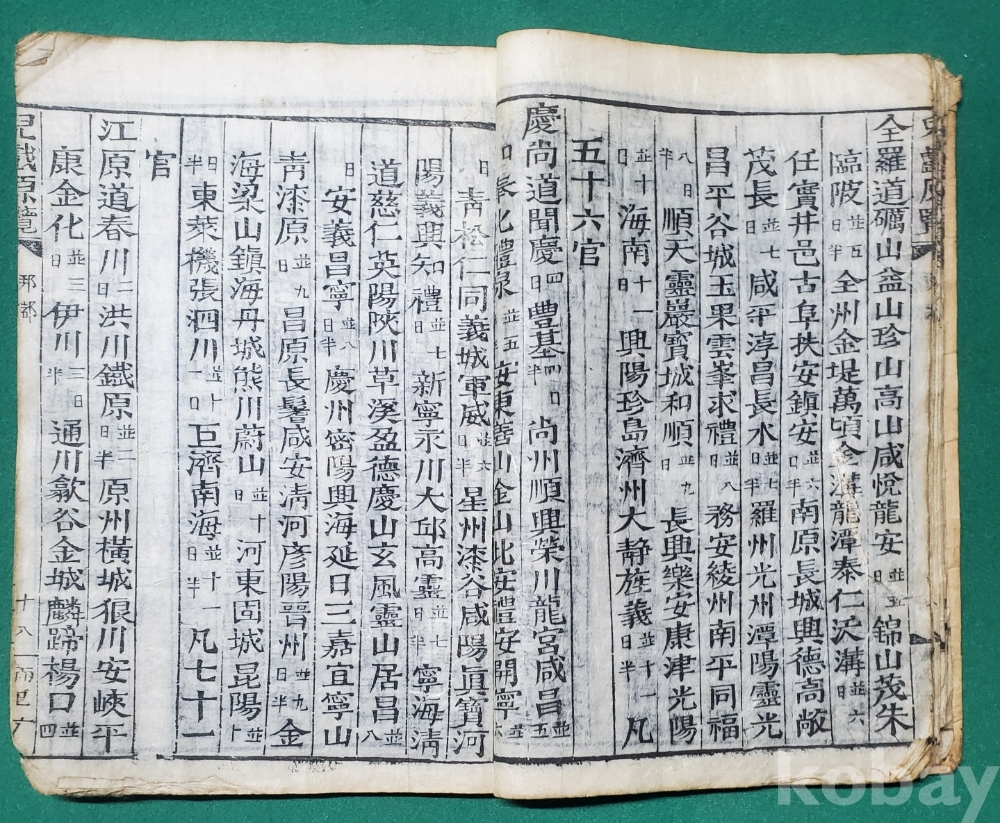 全羅道礪山益山珍山高山咸悅龍安並五日錦山茂朱
臨陂並五日半全州金堤萬頃金溝龍潭泰仁沃溝並六日
任實井邑古阜扶安鎮安並六日半南原長城興德高敞
茂長並七日咸平淳昌長水並七日半羅州光州潭陽靈光
昌平谷城玉果雲峯求禮並八日務安綾州南平同福
八日半順天靈巖寶城和順並九日長興樂安康津光陽
並十日海南十一日興陽珍島濟州大静旌義並十一日半凡
五十六官
慶尚道聞慶四日豊基四日半尙州順興榮川龍宮咸昌五
並五日安東善山金山比安禮安開寧並六
日靑松仁同義城軍威並六日半星州漆谷咸陽眞寶河
陽義興知禮並七日新寧永川大邱高靈並七日半寧海淸
道慈仁英陽陜川草溪盈德慶山玄風靈山居昌並八
日安義昌寧並八日半慶州密陽興海延日三嘉宜寧山
靑漆原並九日昌原長鬐咸安清河彦陽晉州並九日半金
海梁山鎭海丹城熊川蔚山並十日河東固城昆陽十
日半東萊機張泗川並十一日巨濟南海並十一日半凡七十一
官
江原道春川二日洪川鐵原並二日半原州橫城狼川安峽平
康金化並三日伊川三日半通川歙谷金城麟蹄楊口並四
兒戱原覽
十八
kobay